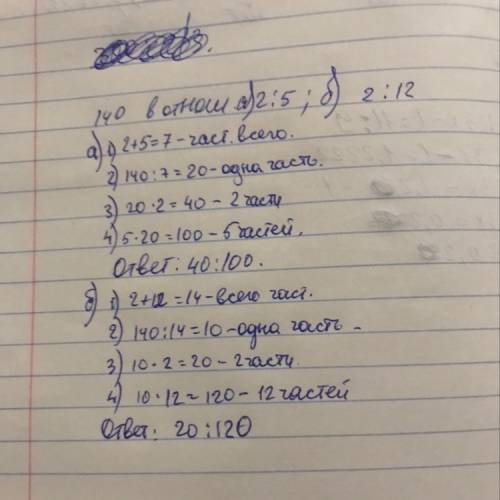 140 в отнош а) 2:5; б) 2:12
а) 1) 2+5=7-част. всего.
2) 140:7=20-одна часть.
3) 20·2=40-2 части
4) 5·20=100-5 частей.
Ответ: 40:100.
б) 1) 2+12=14-всего част.
2) 140:14=10-одна часть-
3) 10·2=20-2 части.
4) 10·12=120-12 частей
Ответ: 20:120